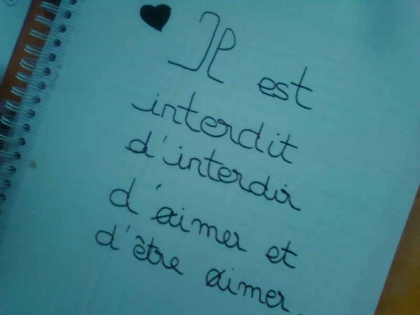 Il est
interdit
d'interdir
d'aimer et
d'être aimer.